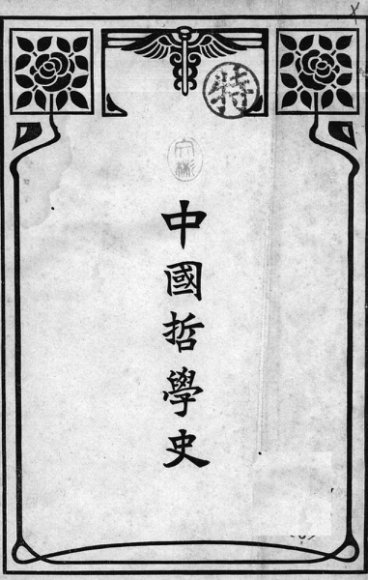 特
中國哲學史